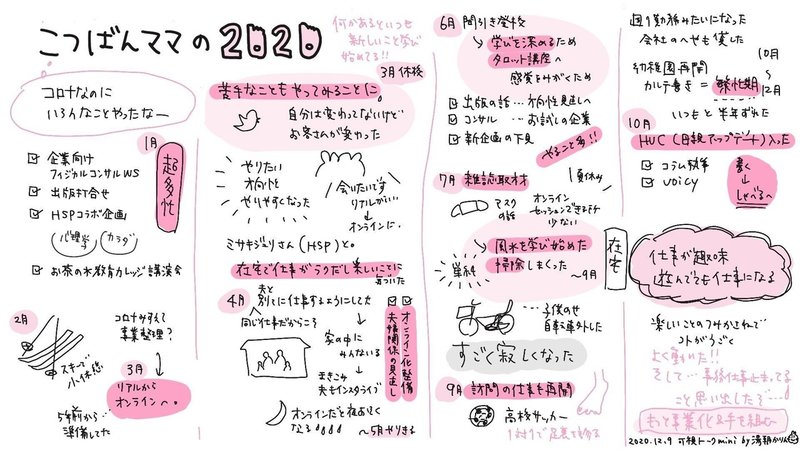 こつばんママの2020
何かあるといつも
新しいこと学び
始めてる!!
コロナなのに
いろんなことやったなー
1月
超多忙
企業向け
フィジカルコンサルWS
出版打合せ
HSPコラボ企画
心理学
カラダ
お茶の水教育カレッジ講演会
2月
スキーで
小休憩
コロナみすえて
事業整理?
3月
リアルから
オンラインへ。
5年前から…
準備してた
3月休校
苦手なこともやってみることに
自分は変わってないけど
お客さんが変わった
やりたい
方向性と
やりやすくなった
会いたいです
リアルがいい
→オンラインに。
ミサキジュリさん(HSP)と。
在宅で仕事がラクだし楽しいことに
気づいた
4月
夫と
別々に仕事するようにしてた
同じ仕事だからこそ
家の中に
みんないる
まきこみ
夫もインスタライブ
オンラインだと夜おそく
なる
〜5月やりきる
オンライン化整備
夫婦関係の見直し
6月 間引き登校
学びを深めるため
タロット講座へ
感覚をみがくため
出版の話…方向性見直しへ
コンサル…お試しの企業
新企画の下見
やること多!!
7月 雑誌取材
夏休み
マスク
の話
オンライン
セッションできる子
少ない
風水を学び始めた
掃除しまくった
〜9月
在宅
子供のせ
自転車外した
すごく寂しくなった
9月 訪問の仕事を再開
高校サッカー
1対1で足裏を診る
週1勤務みたいになった
会社のヘやも使した
幼稚園再開
カルテ書き = 繁忙期
10月
〜
12月
いつもと半年ずれた
10月
HUC(日報アップデート)入った
コラム執筆
voicy
書く
↓
しゃべるへ
仕事が趣味
遊んでても仕事になる
楽しいことのつみかさねで
コトがうごく
よく動いた!!
そして…事務仕事止まってる
こと思い出した…
もっと事業化&手を組む
2020.12.9 可視トークmini by 湯朝かりん